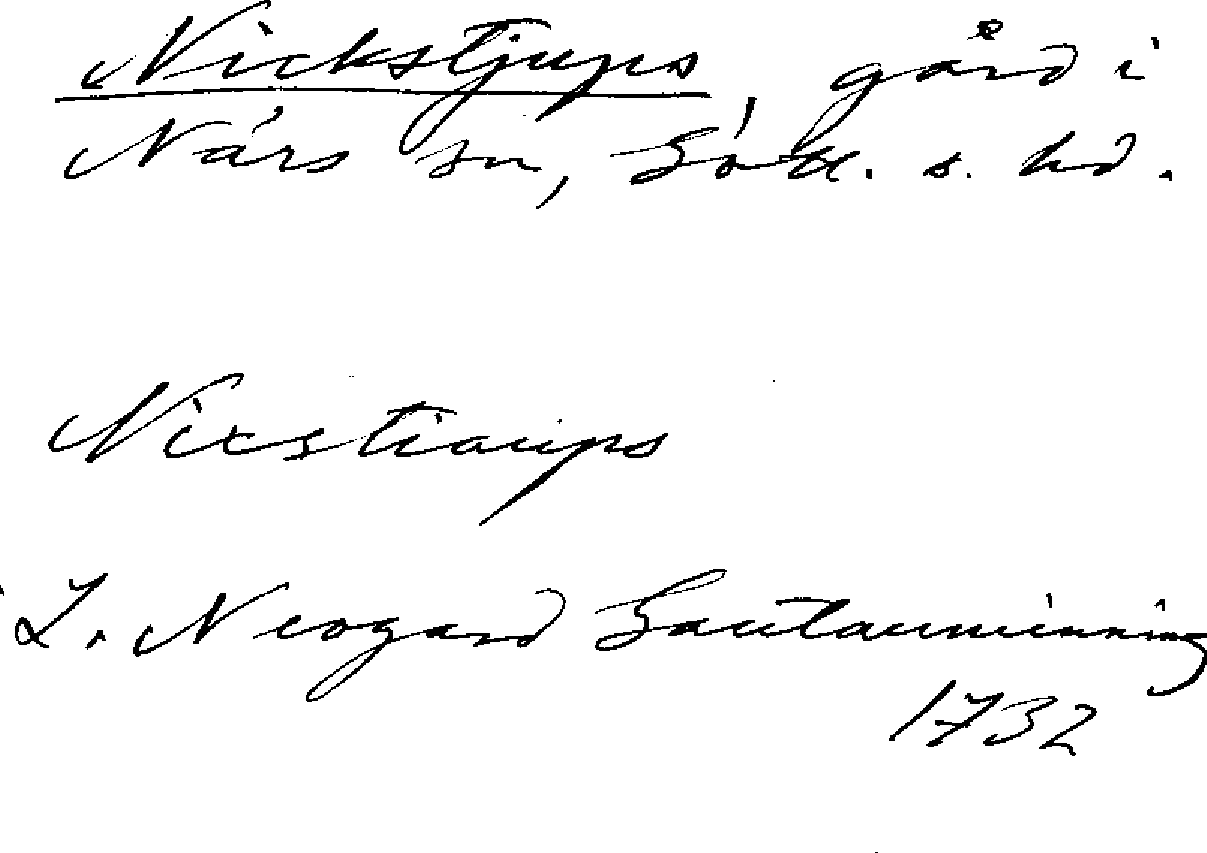 Nickstjups, gård i
Närs sn, Gotl. s. hd.
Nicstiaups
L. Neogard Gautauminning
1732